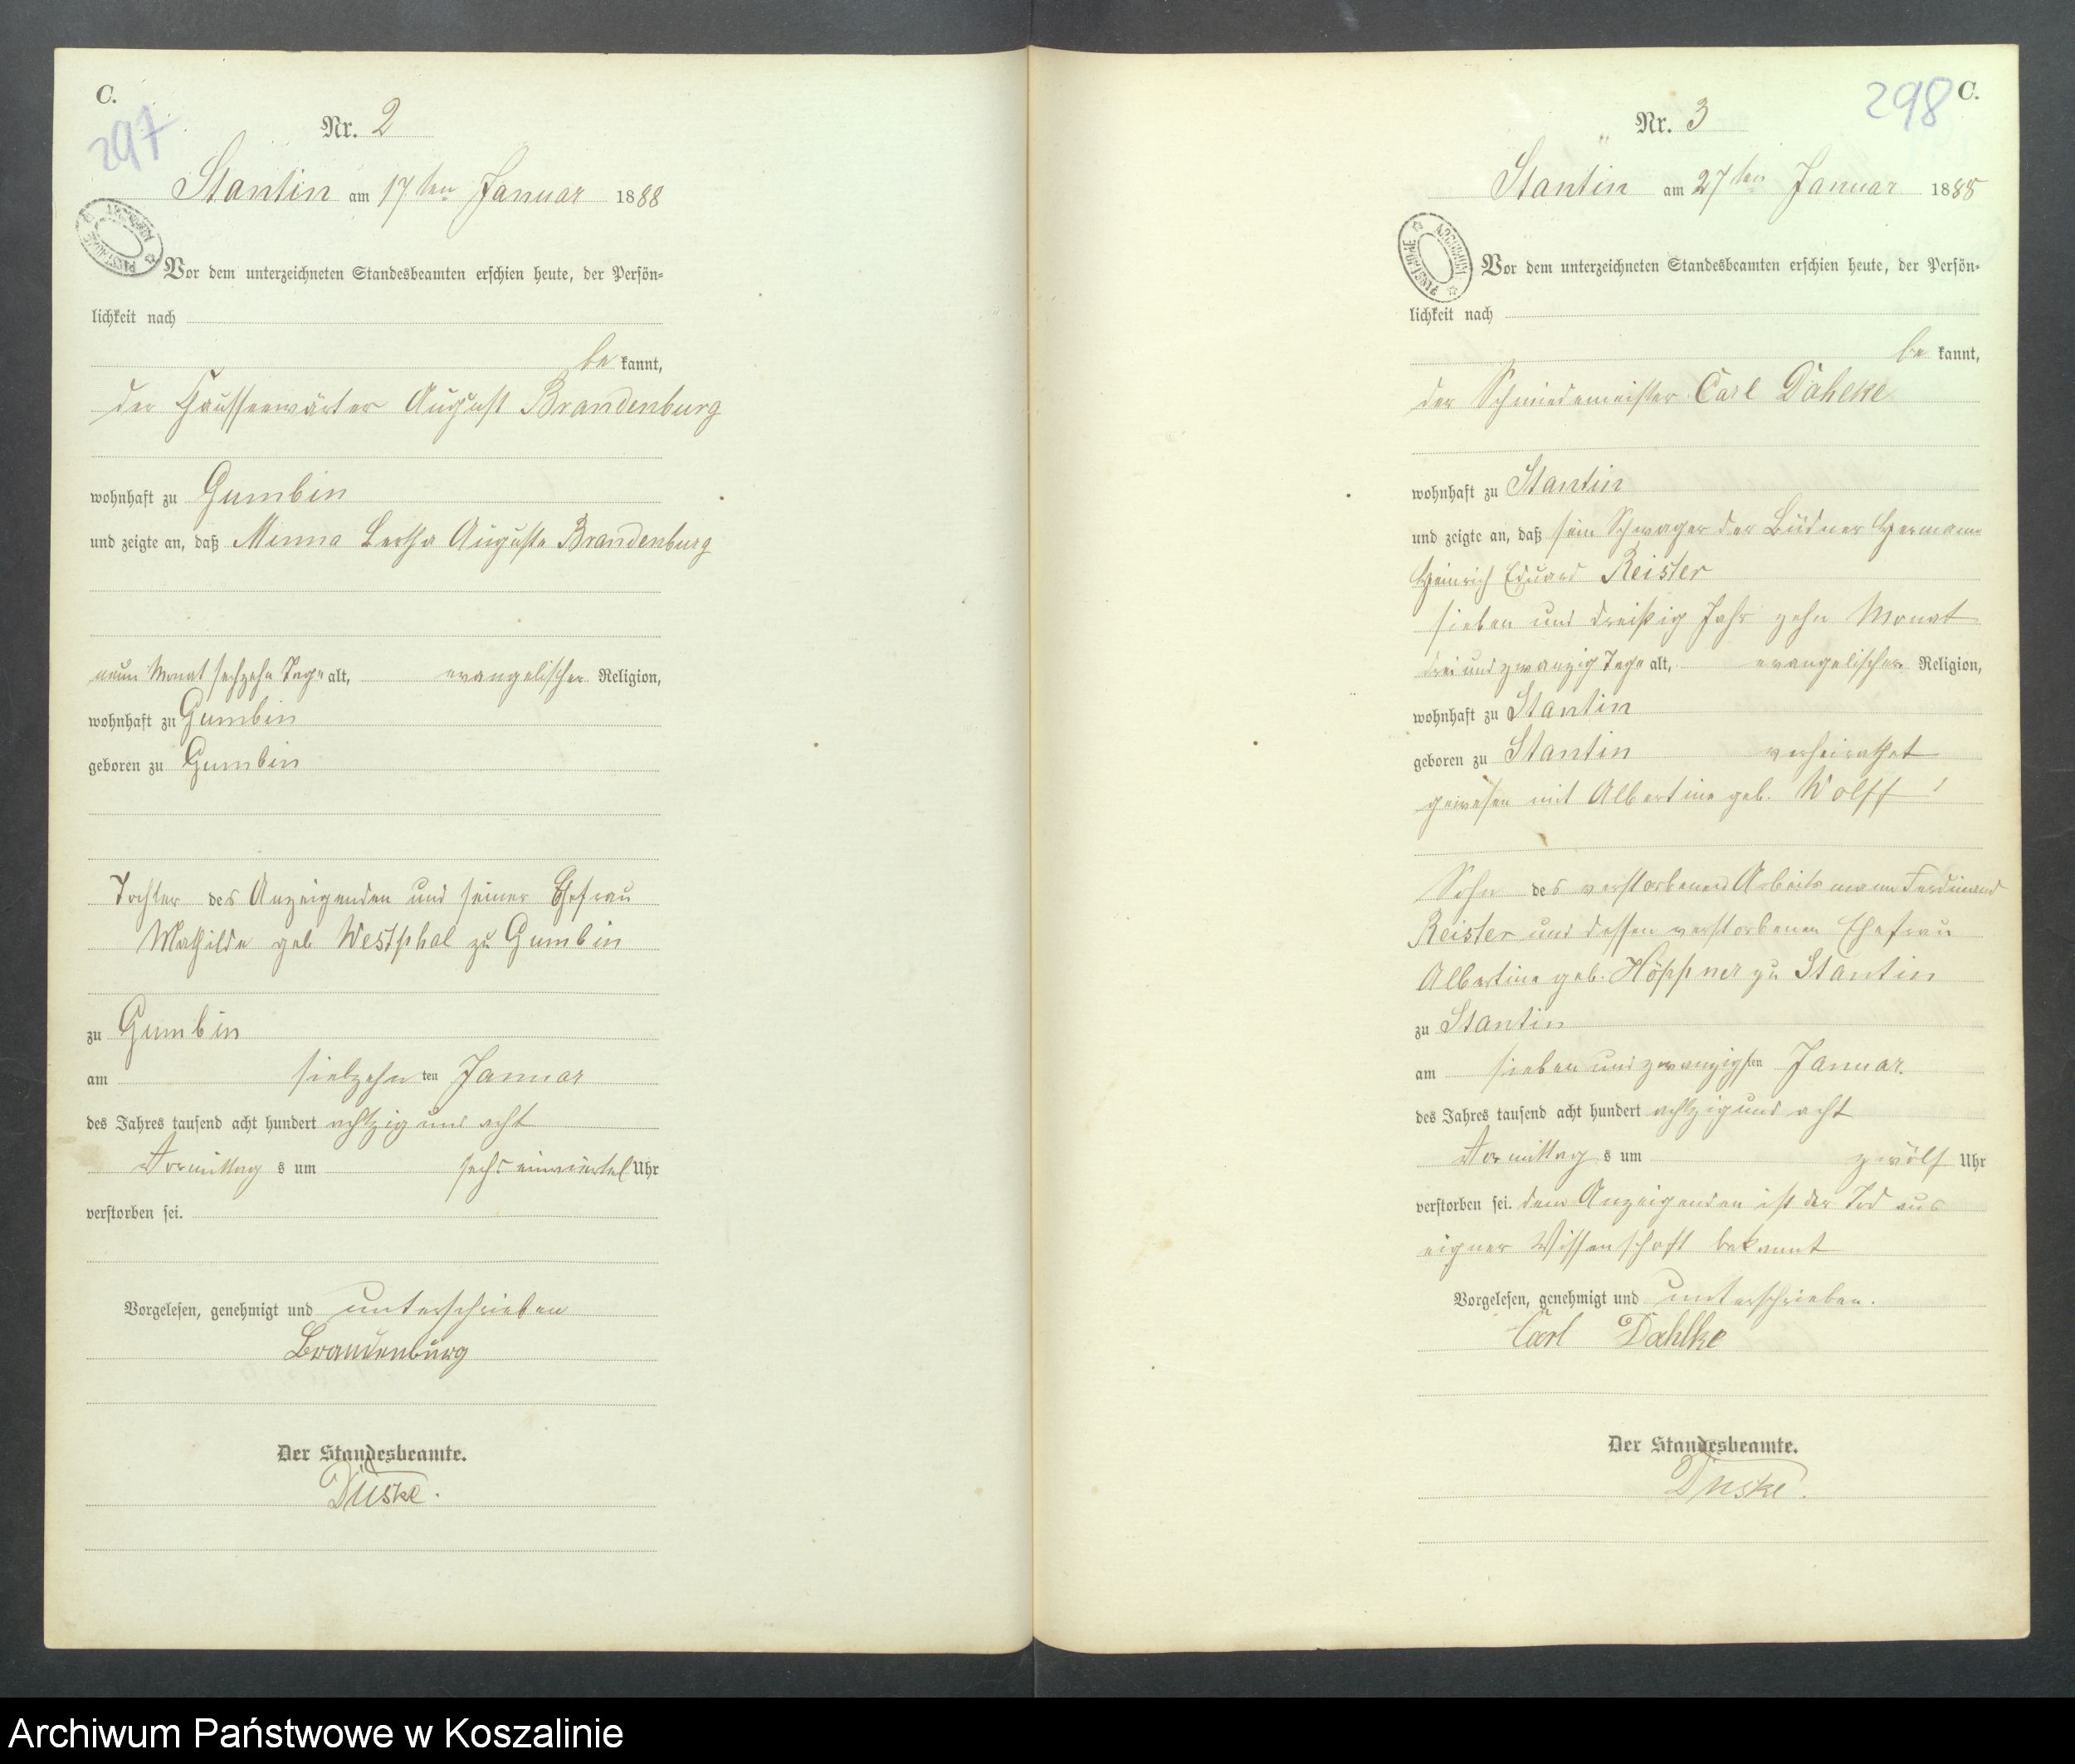 C.
297
Nr. 2
Stantin am 17ten Januar 1888
Vor dem unterzeichneten Standesbeamten erschien heute, der Persön-
lichkeit nach
be kannt,
der Chausseewärter August Brandenburg
wohnhaft zu Gumbin
und zeigte an, daß Minna Bertha Auguste Brandenburg
neun Monat sechzehn Tage alt, evangelischer Religion,
wohnhaft zu Gumbin
geboren zu Gumbin
Tochter des Anzeigenden und seiner Ehefrau
Mathilde geb Westphal zu Gumbin
zu Gumbin
am siebzehn ten Januar
des Jahres tausend acht hundert achtzig und acht
Vormittag s um sechs einviertel Uhr
verstorben sei.
Vorgelesen, genehmigt und unterschrieben
Brandenburg
Der Standesbeamte.
Duske.
298
C.
Nr. 3
Stantin am 27ten Januar 1888
Vor dem unterzeichneten Standesbeamten erschien heute, der Persön-
lichkeit nach
be kannt,
der Schmiedemeister Carl Dahlke
wohnhaft zu Stantin
und zeigte an, daß sein Schwager der Büdner Hermann
Heinrich Eduard Reister
sieben und dreißig Jahr zehn Monat
drei und zwanzig Tage alt, evangelischer Religion,
wohnhaft zu Stantin
geboren zu Stantin verheirathet
gewesen mit Albertine geb. Wolff
Sohn des verstorbenen Arbeitsmann Ferdinand
Reister und dessen verstorbenen Ehefrau
Albertine geb. Höppner zu Stantin
zu Stantin
am sieben und zwanzigsten Januar.
des Jahres tausend acht hundert achtzig und acht
Vormittag s um zwölf Uhr
verstorben sei. dem Anzeigenden ist der Tod aus
eigner Wissenschaft bekannt
Vorgelesen, genehmigt und unterschrieben.
Carl Dahlke
Der Standesbeamte.
Duske.
Archiwum Państwowe w Koszalinie